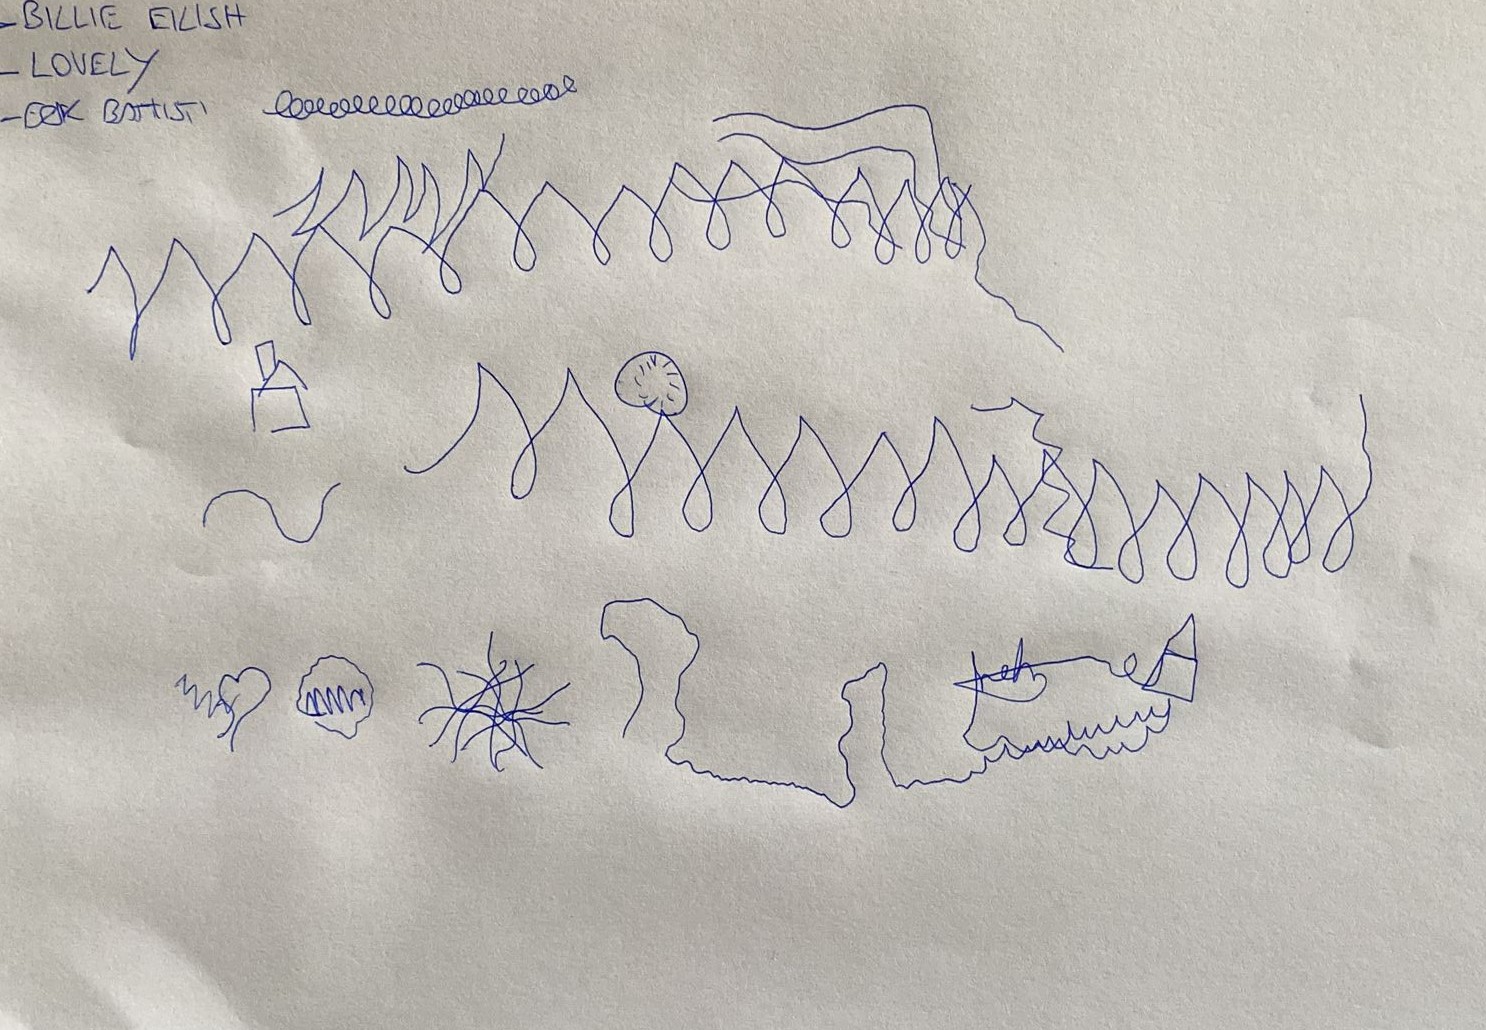 -BILLIE EILISH
- LOVELY
- BATTISTI